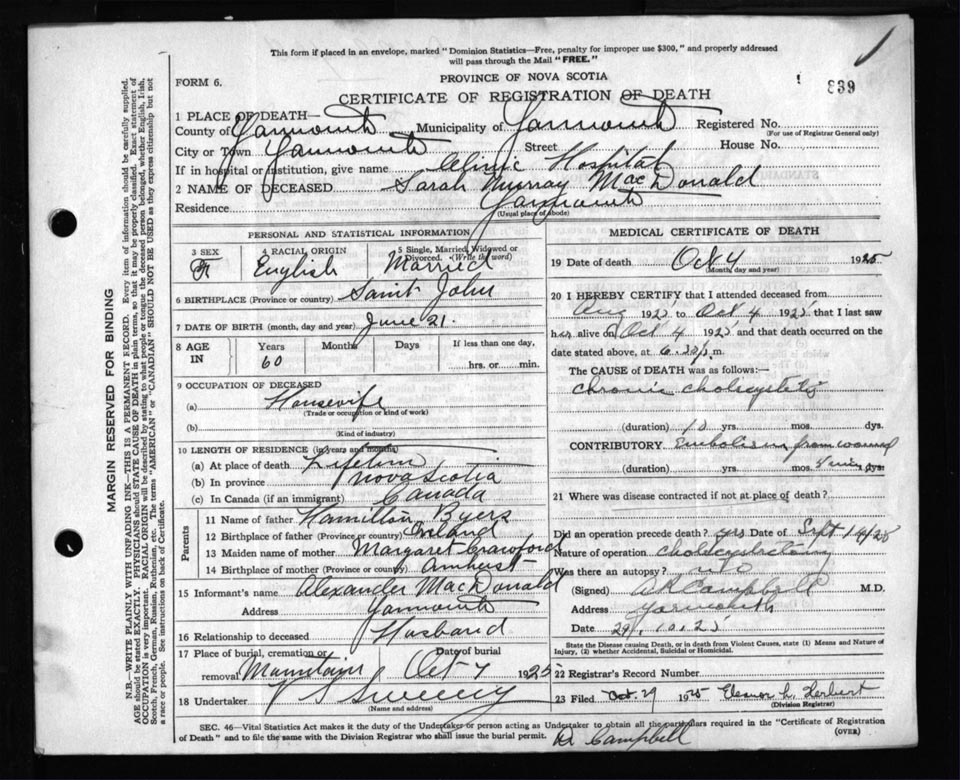 This form if placed in an envelope, marked "Dominion Statistics—Free, penalty for improper use $300," and properly addressed
will pass through the Mail "FREE."
FORM 6.
PROVINCE OF NOVA SCOTIA
839
CERTIFICATE OF REGISTRATION OF DEATH
1 PLACE OF DEATH—
County of Yarmouth Municipality of Yarmouth Registered No.
(For use of Registrar General only)
City or Town Yarmouth Street House No.
If in hospital or institution, give name Clinic Hospital
2 NAME OF DECEASED Sarah Murray MacDonald
Residence Yarmouth
(Usual place of abode)
PERSONAL AND STATISTICAL INFORMATION
3 SEX F
4 RACIAL ORIGIN English
5 Single, Married, Widowed or Divorced. (Write the word) Married
6 BIRTHPLACE (Province or country) Saint John
7 DATE OF BIRTH (month, day and year) June 21.
8 AGE IN Years 60 Months Days If less than one day, hrs. or min.
9 OCCUPATION OF DECEASED
(a) Housewife
(Trade or occupation or kind of work)
(b)
(Kind of industry)
10 LENGTH OF RESIDENCE (in years and months)
(a) At place of death Lifetime
(b) In province Nova Scotia
(c) In Canada (if an immigrant) Canada
Parents
11 Name of father Hamilton Byers
12 Birthplace of father (Province or country) Ireland
13 Maiden name of mother Margaret Crawford
14 Birthplace of mother (Province or country) Amherst
15 Informant's name Alexander MacDonald
Address Yarmouth
16 Relationship to deceased Husband
17 Place of burial, cremation or removal Mountain Date of burial Oct 7 1925
18 Undertaker V S Sweeny
(Name and address)
MEDICAL CERTIFICATE OF DEATH
19 Date of death Oct 4 1925
(Month, day and year)
20 I HEREBY CERTIFY that I attended deceased from
Aug 1925 to Oct 4 1925 that I last saw
her alive on Oct 4 1925 and that death occurred on
date stated above, at 6.30 p.m.
The CAUSE of DEATH was as follows:—
Chronic cholecystitis
(duration) 10 yrs. mos. dys.
CONTRIBUTORY Embolism from wound
(duration) yrs. mos. dys.
21 Where was disease contracted if not at place of death?
Did an operation precede death? yes Date of Sept 14/25
Nature of operation cholecystectomy
Was there an autopsy? no
(Signed) Campbell M.D.
Address Yarmouth
Date 29.10.25
State the Disease causing Death, or in death from Violent Causes, state (1) Means and Nature of
Injury, (2) whether Accidental, Suicidal or Homicidal.
22 Registrar's Record Number
23 Filed Oct. 29 1925 Eleanor L. Herbert
(Division Registrar)
SEC. 46—Vital Statistics Act makes it the duty of the Undertaker or person acting as Undertaker to obtain all the particulars required in the "Certificate of Registration
of Death" and to file the same with the Division Registrar who shall issue the burial permit.
(OVER)
Dr Campbell
MARGIN RESERVED FOR BINDING
N.B.—WRITE PLAINLY WITH UNFADING INK—THIS IS A PERMANENT RECORD. Every item of information should be carefully supplied.
AGE should be stated EXACTLY. PHYSICIANS should STATE CAUSE OF DEATH in plain terms, so that it may be properly classified. Exact statement of
OCCUPATION is very important. RACIAL ORIGIN will be described by stating to what people or tongue the deceased person belonged, whether English, Irish,
Scotch, French, German, Russian, Ruthenian, etc. The terms "AMERICAN" or "CANADIAN" SHOULD NOT BE USED as they express citizenship but not
a race or people. See instructions on back of Certificate.